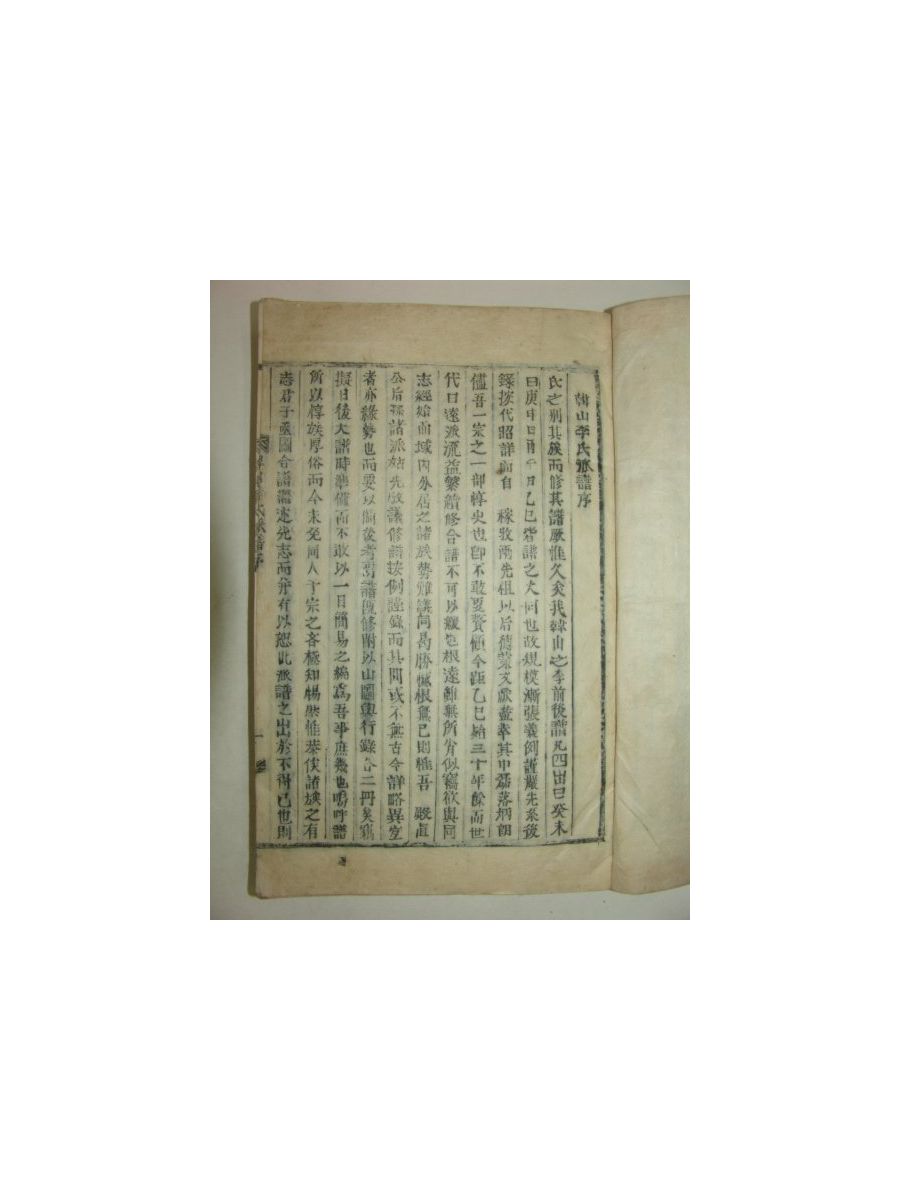 韓山李氏派譜序
氏之別其族而修其譜厥惟久矣我韓山之李前後譜凡四出曰癸未
曰庚申曰酉午曰乙巳皆譜之大同也故規模漸張義例謹嚴先系後
錄挨代昭詳而自 稼牧兩先祖以后德業文獻並幸其中磊落炳朗
儘吾一宗之一部惇史也卽不敢更贅愼今距乙巳紿三十年餘而世
代曰遠派流益繁續修合譜不可以緩也根遠難無所肯似寫欲與同
志經紿而域內外居之諸族勢難議同曷勝慽根無已則惟吾 殿直
公后孫諸派始先啟議修譜按例謹錄而其間或不無古今詳略異室
者亦緣勢也而要以備後考焉譜旣修附以山圖與行錄合二冊矣竊
擬日後大譜時準備而不敢以一日簡易之編爲吾事庶幾也嗚呼譜
所以惇族厚俗而今未免同人于宗之吝極知惕然惟恭俟諸族之有
志君子亟圖合譜 述先志而 有以恕此派譜之出於不得已也則
韓山李氏派譜序 一